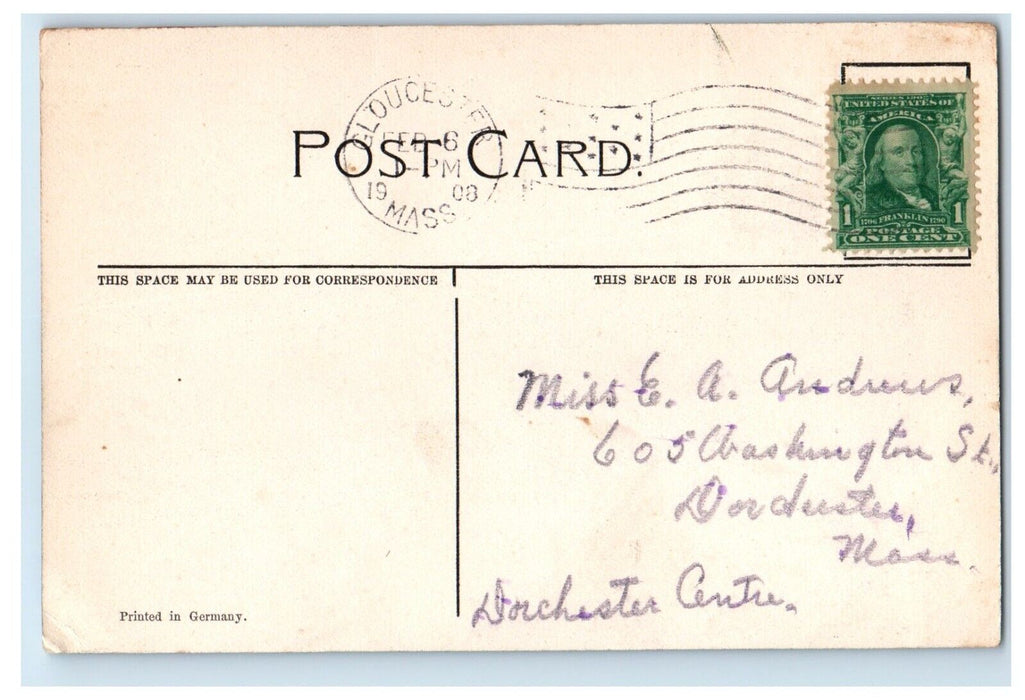 GLOUCESTER
FEB 6
1-PM
19 08
MASS
POST CARD.
SERIES 1902
UNITED STATES OF
AMERICA
1 1706 FRANKLIN 1790 1
POSTAGE
ONE CENT
THIS SPACE MAY BE USED FOR CORRESPONDENCE
THIS SPACE IS FOR ADDRESS ONLY
Miss E. A. Andrews,
605 Washington St.,
Dorchester,
Mass.
Dorchester Centre.
Printed in Germany.